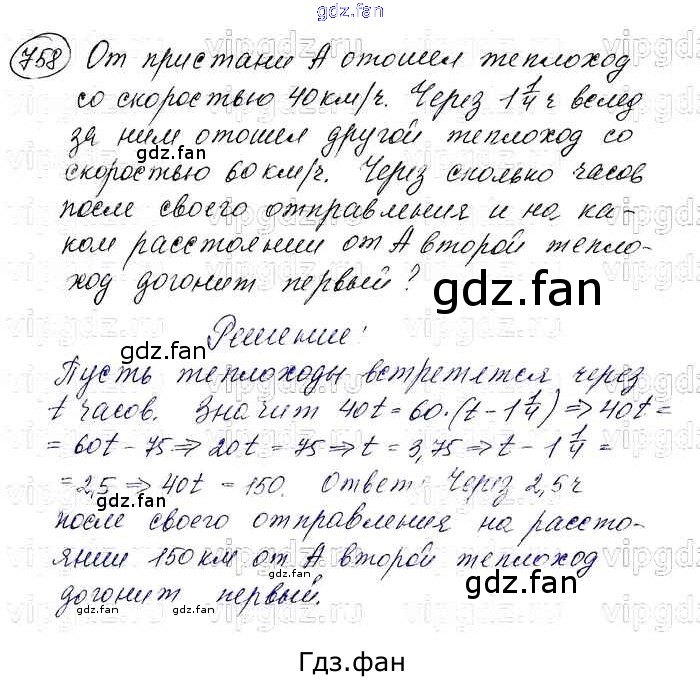 gdz.fan
758 От пристани А отошел теплоход
со скоростью 40 км/ч. Через 1 1/4 ч вслед
за ним отошел другой теплоход со
gdz.fan
скоростью 60 км/ч. Через сколько часов
после своего отправления и на ка-
ком расстоянии от А второй тепло-
ход догонит первый?
gdz.fan
gdz.fan
Решение:
gdz.fan
Пусть теплоходы встретятся через
t часов. Значит 40t = 60·(t - 1 1/4) ⇒ 40t =
= 60t - 75 ⇒ 20t = 75 ⇒ t = 3,75 ⇒ t - 1 1/4 =
= 2,5 ⇒ 40t = 150. Ответ: Через 2,5 ч
gdz.fan
gdz.fan
после своего отправления на рассто-
янии 150 км от А второй теплоход
догонит первый.
gdz.fan
gdz.fan
gdz.fan
Гдз.фан